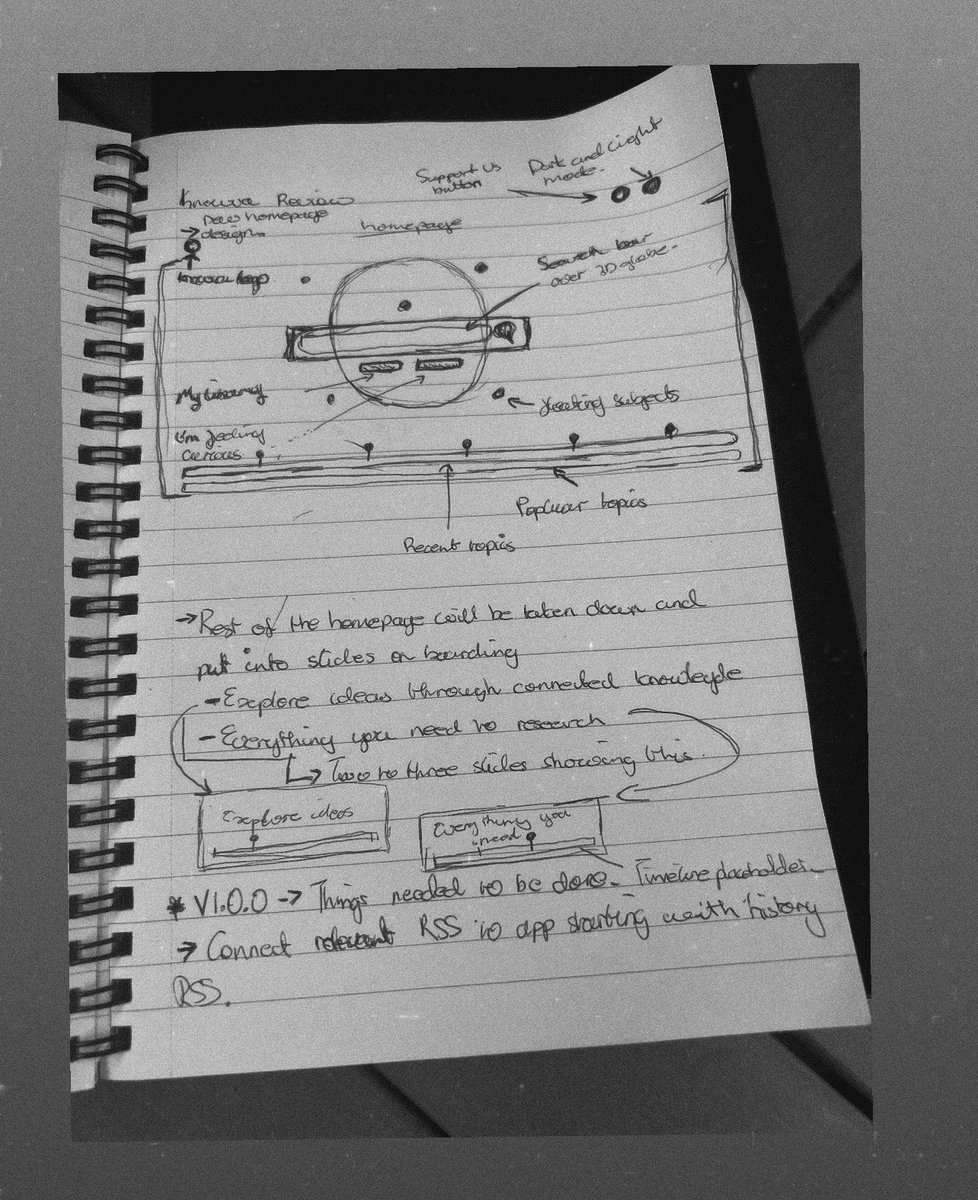 Review
New homepage
→ design.
homepage
Support us
button
Dark and Light
mode.
logo
Search bar
over 3D globe.
My library
I'm feeling
curious
floating subjects
Popular topics
Recent topics
→ Rest of the homepage will be taken down and
put into slides on boarding
- Explore ideas through connected knowledge
- Everything you need to research
↳ Two to three slides showing this.
Explore ideas
Everything you
need
* V1.0.0 → Things needed to be done.
Timeline placeholder.
→ Connect relevant RSS to app starting with history
RSS.